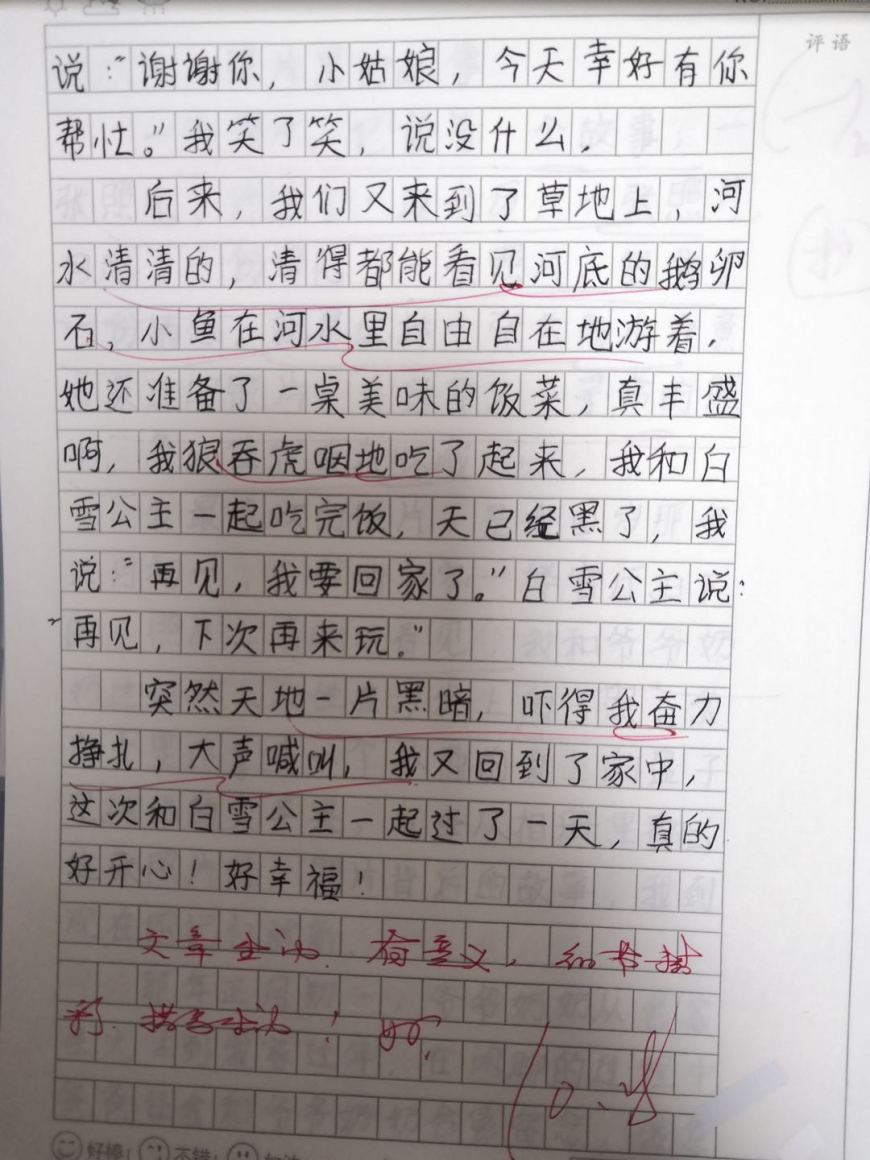 评语
说:“谢谢你,小姑娘,今天幸好有你
帮忙。”我笑了笑,说没什么.
后来,我们又来到了草地上,河
水清清的,清得都能看见河底的鹅卵
石,小鱼在河水里自由自在地游着.
她还准备了一桌美味的饭菜,真丰盛
啊,我狼吞虎咽地吃了起来,我和白
雪公主一起吃完饭,天已经黑了,我
说:“再见,我要回家了。”白雪公主说:
“再见,下次再来玩.”
突然天地一片黑暗,吓得我奋力
挣扎,大声喊叫,我又回到了家中,
这次和白雪公主一起过了一天,真的
好开心!好幸福!
文章生动.有意义,细节精
彩.描写生动!好.
好棒! 不错! 加油